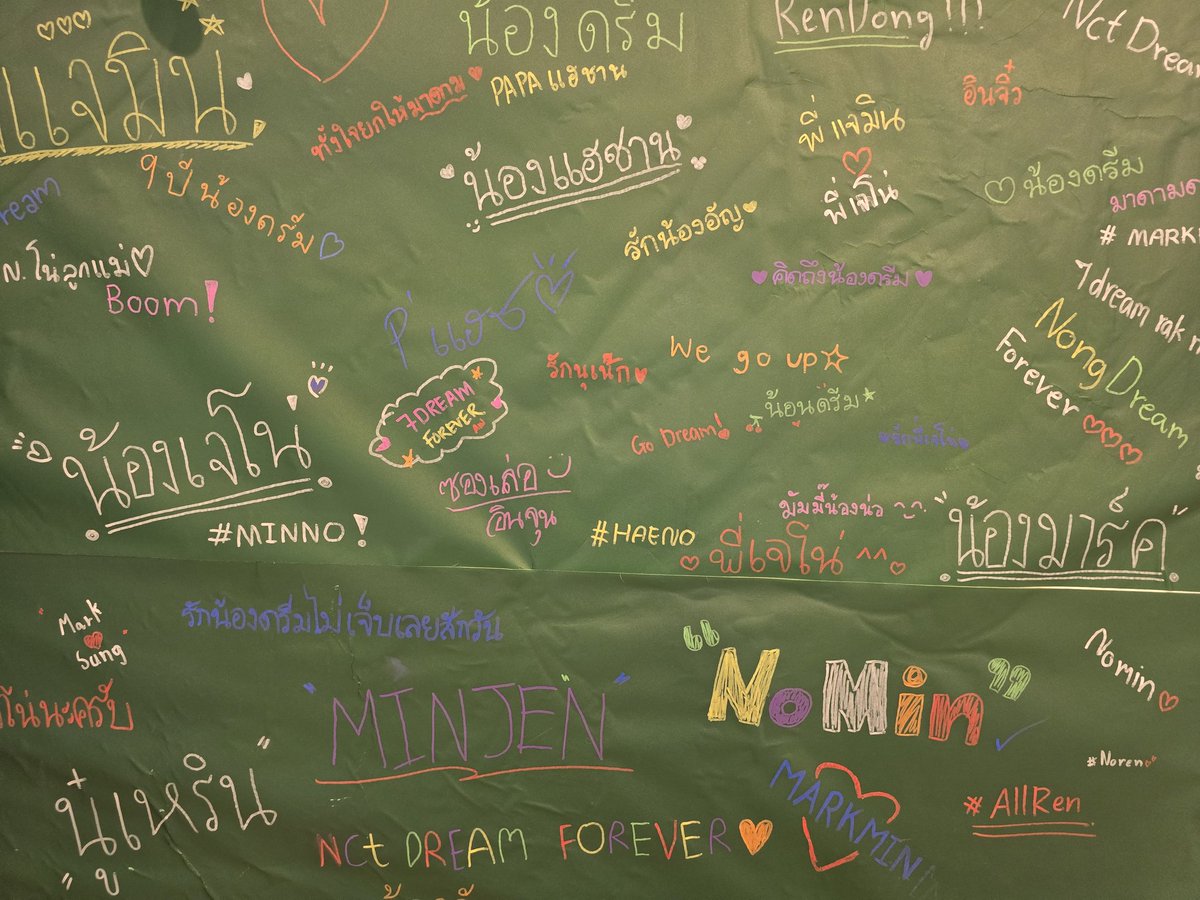 แจมิน
น้องดรีม
RenDong!!!
Nct Dream
ทั้งใจยกให้มาดาม
PAPA แฮชาน
อินจิ๋ว
น้องแฮชาน
พี่แจมิน
พี่เจโน่
น้องดรีม
9 ปี น้องดรีม
รักน้องอัญ
# MARK
N. โน่ลูกแม่
Boom!
คิดถึงน้องดรีม
P' แฮช
7 dream rak
Nong Dream
Forever
We go up
รักนุเน้ก
7DREAM
FOREVER
น้อนดรีม
Go Dream!
น้องเจโน่
ซองเล่อ
อินจุน
#MINNO!
#HAENO
มัมมี๊น้องน่อ ^_^
พี่เจโน่ ^^
"น้องมาร์ค"
"Mark
Sung"
รักน้องดรีมไม่เจ็บเลยสักวัน
"MINJEN"
"NoMin"
Nomin
โน่นะครับ
#Noren
MARKMIN
# AllRen
NCt DREAM FOREVER